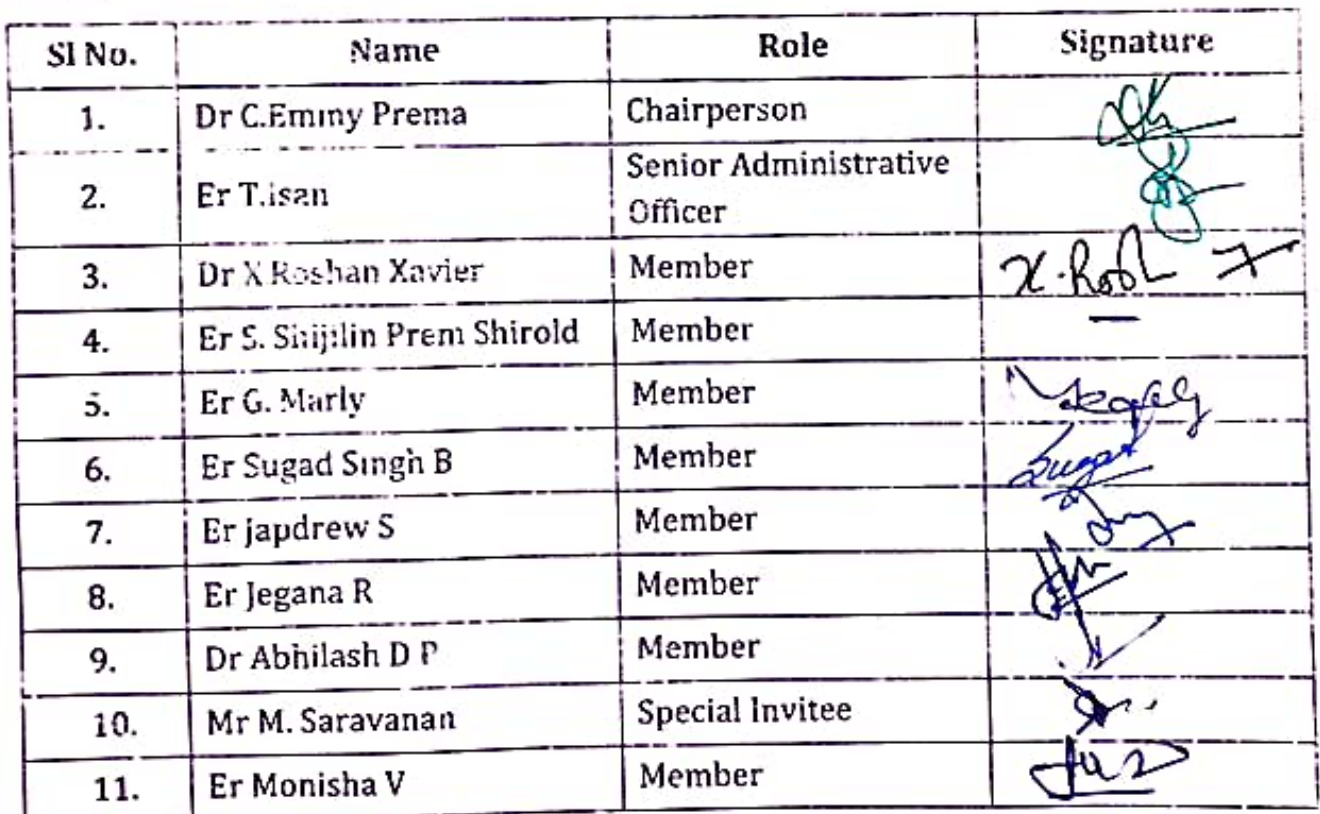 Sl No. Name Role Signature
1. Dr C.Emmy Prema Chairperson
2. Er T.isan Senior Administrative
Officer
3. Dr X Roshan Xavier Member X.Rosh
4. Er S. Shijilin Prem Shirold Member –
5. Er G. Marly Member
6. Er Sugad Singh B Member Sugad
7. Er japdrew S Member
8. Er Jegana R Member
9. Dr Abhilash D P Member
10. Mr M. Saravanan Special Invitee
11. Er Monisha V Member